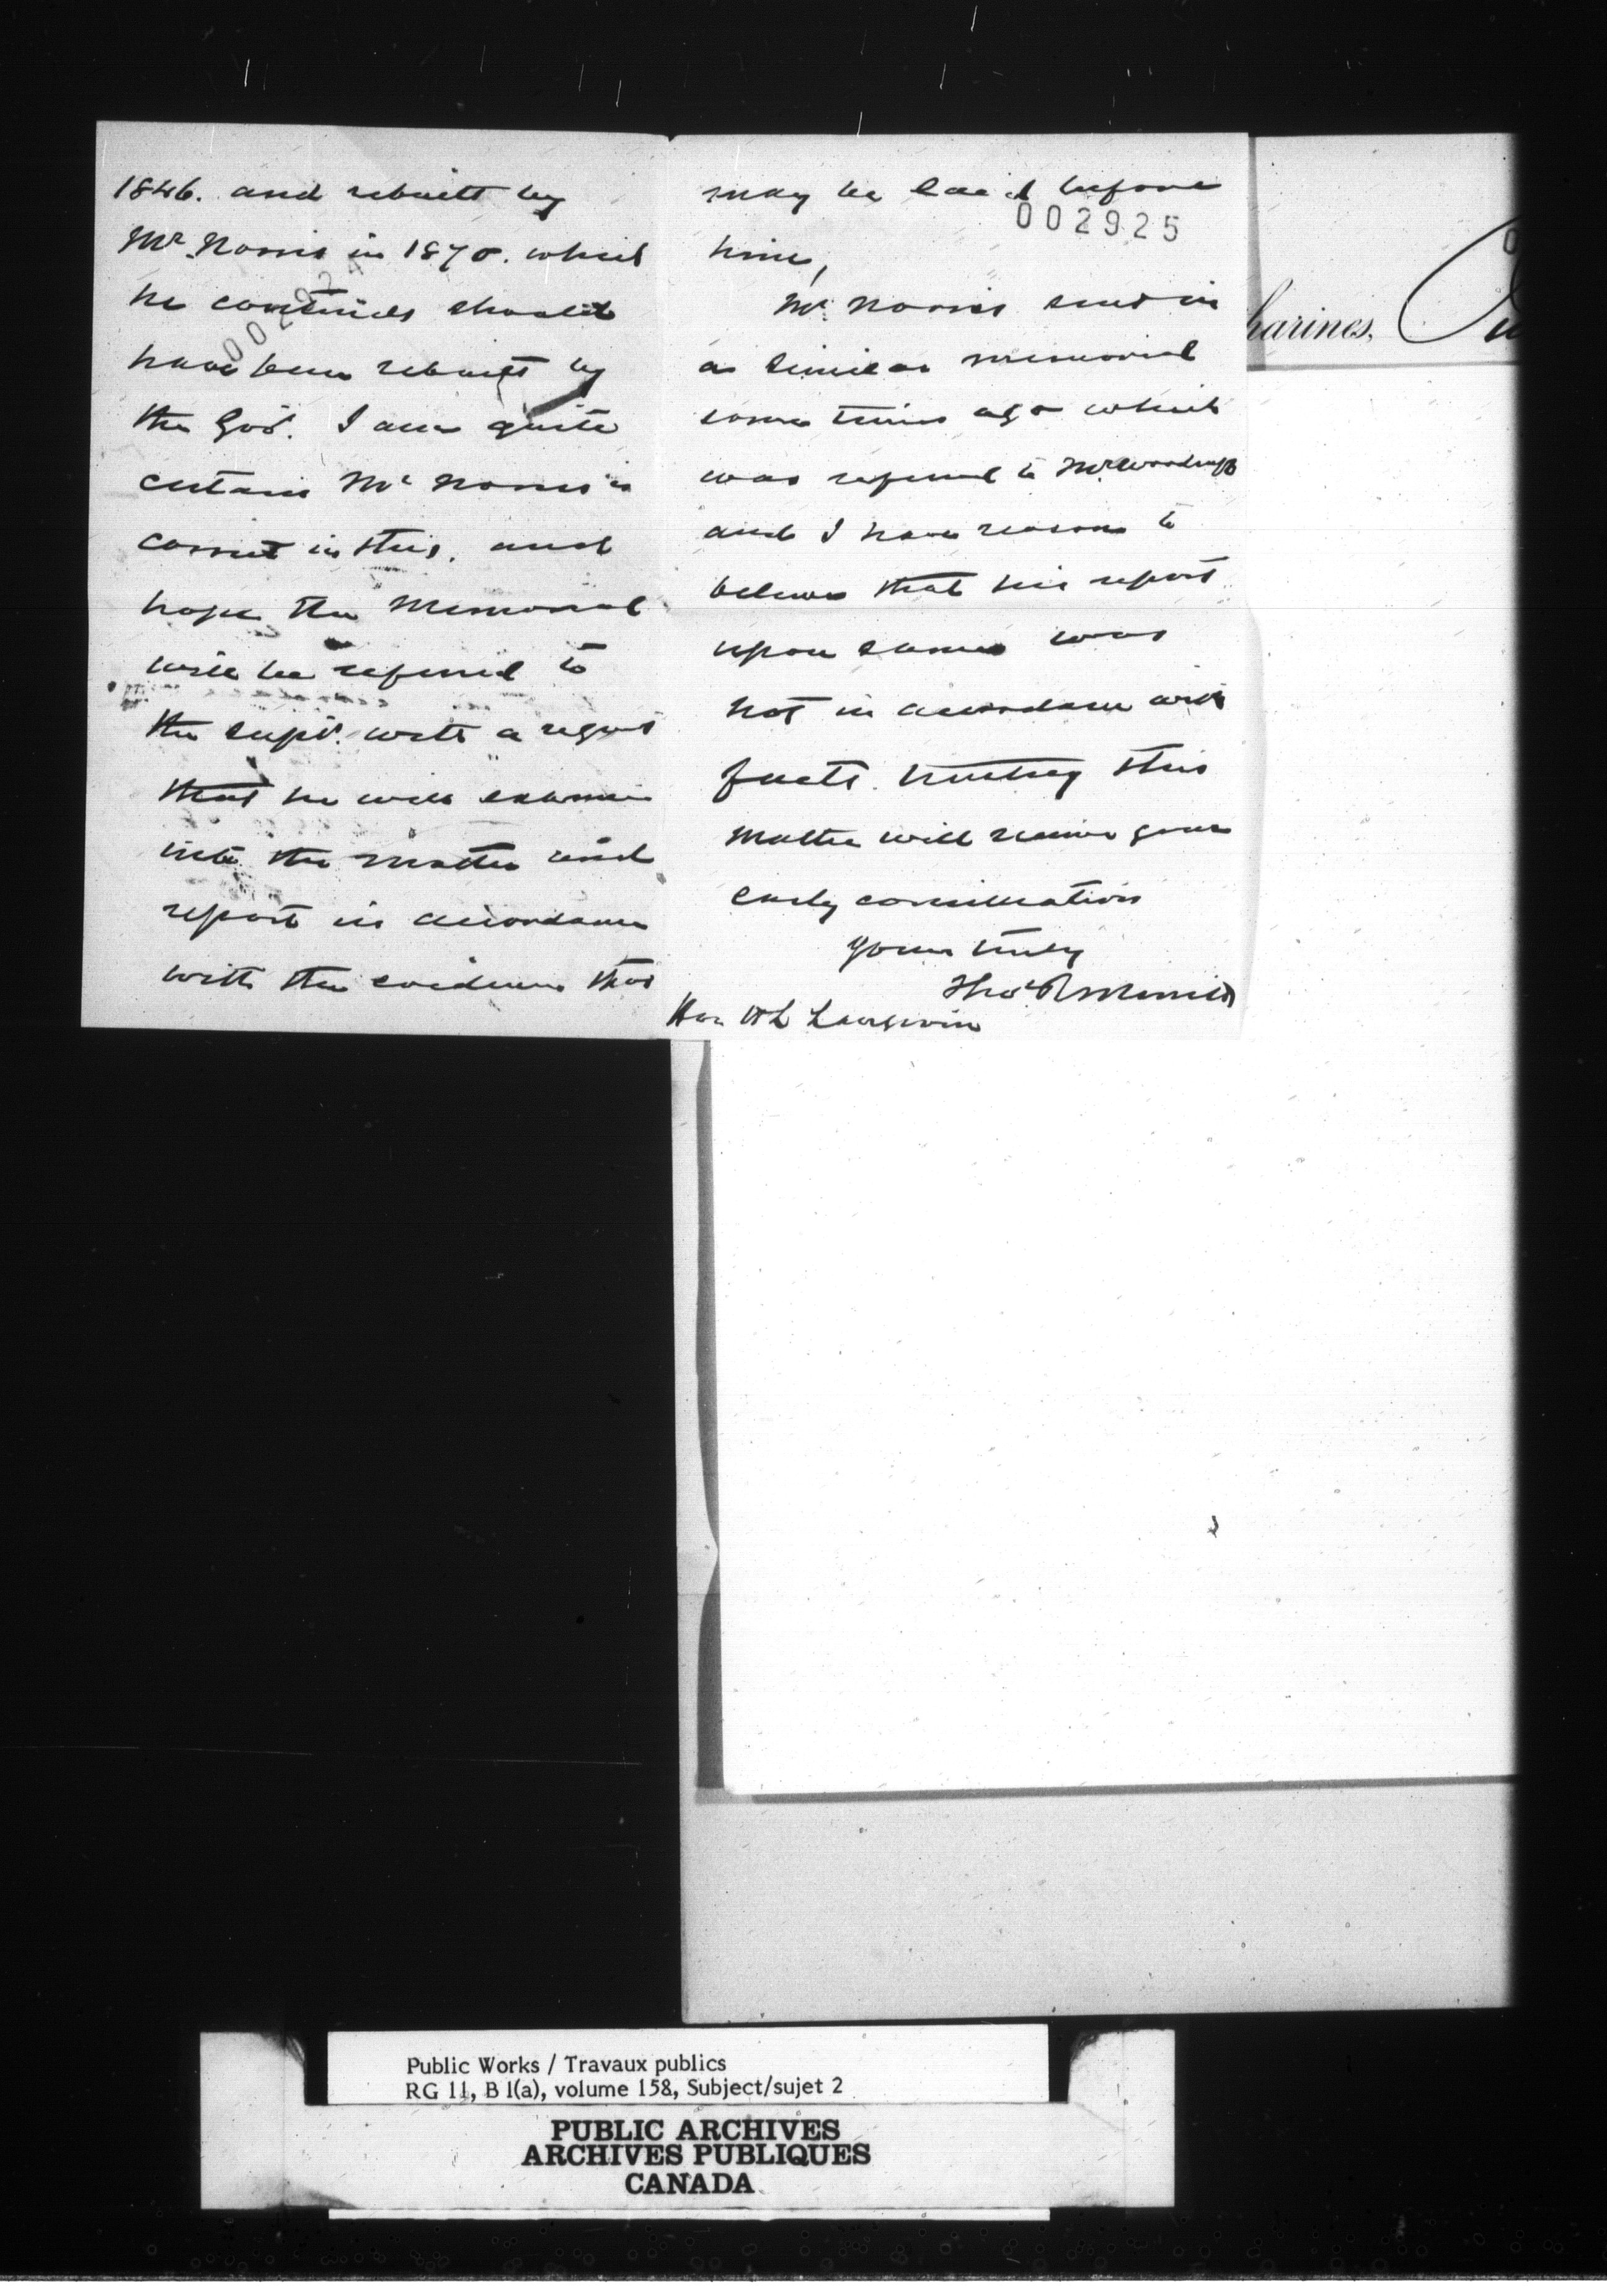 1846. and rebuilt by
Mr. Norris in 1870. which
he contends should
have been rebuilt by
the Gov't. I am quite
certain Mr Norris is
correct in this. and
hope the Memorial
will be referred to
the Supt. with a request
that he will examine
into the matter and
report in accordance
with the evidence that
may be laid before
002925
him,
Mr. Norris sent in
a similar memorial
some time ago which
was referred to Mr. Woodruff
and I have reason to
believe that his report
upon same was
not in accordance with
facts. trusting this
matter will receive your
early consideration
Yours truly
Thos R Merritt
Hon H L Langevin
harines,
Public Works / Travaux publics
RG 11, B 1(a), volume 158, Subject/sujet 2
PUBLIC ARCHIVES
ARCHIVES PUBLIQUES
CANADA